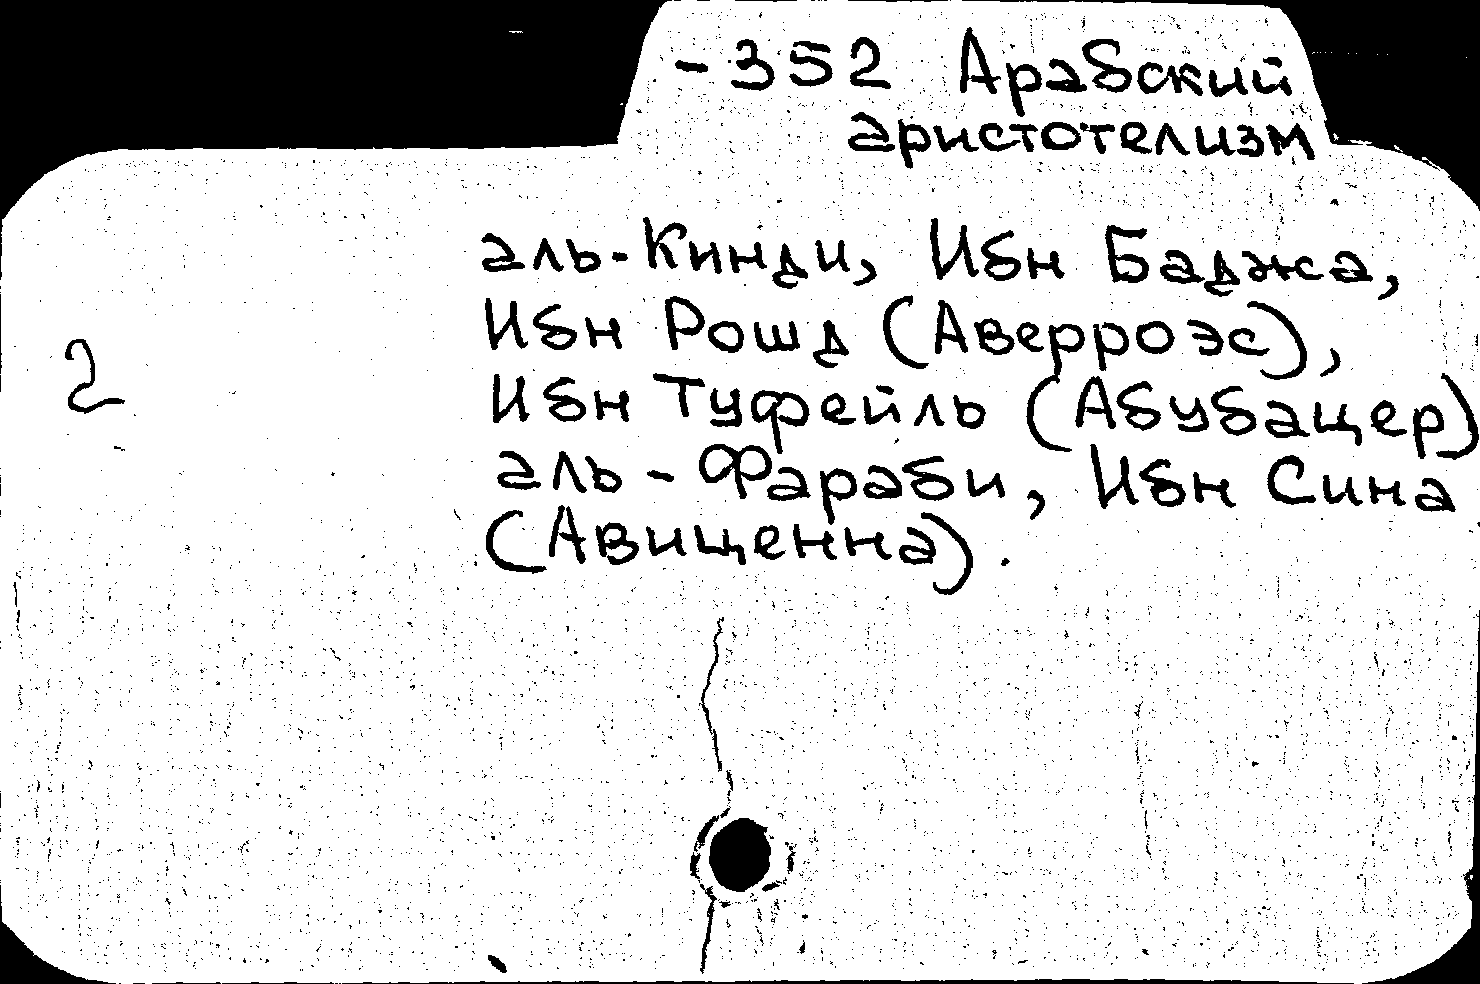 -352 Арабский
аристотелизм
аль-Кинди, Ибн Баджа,
Ибн Рошд (Аверроэс),
2
Ибн Туфейль (Абубацер)
аль-Фараби, Ибн Сина
(Авиценна).